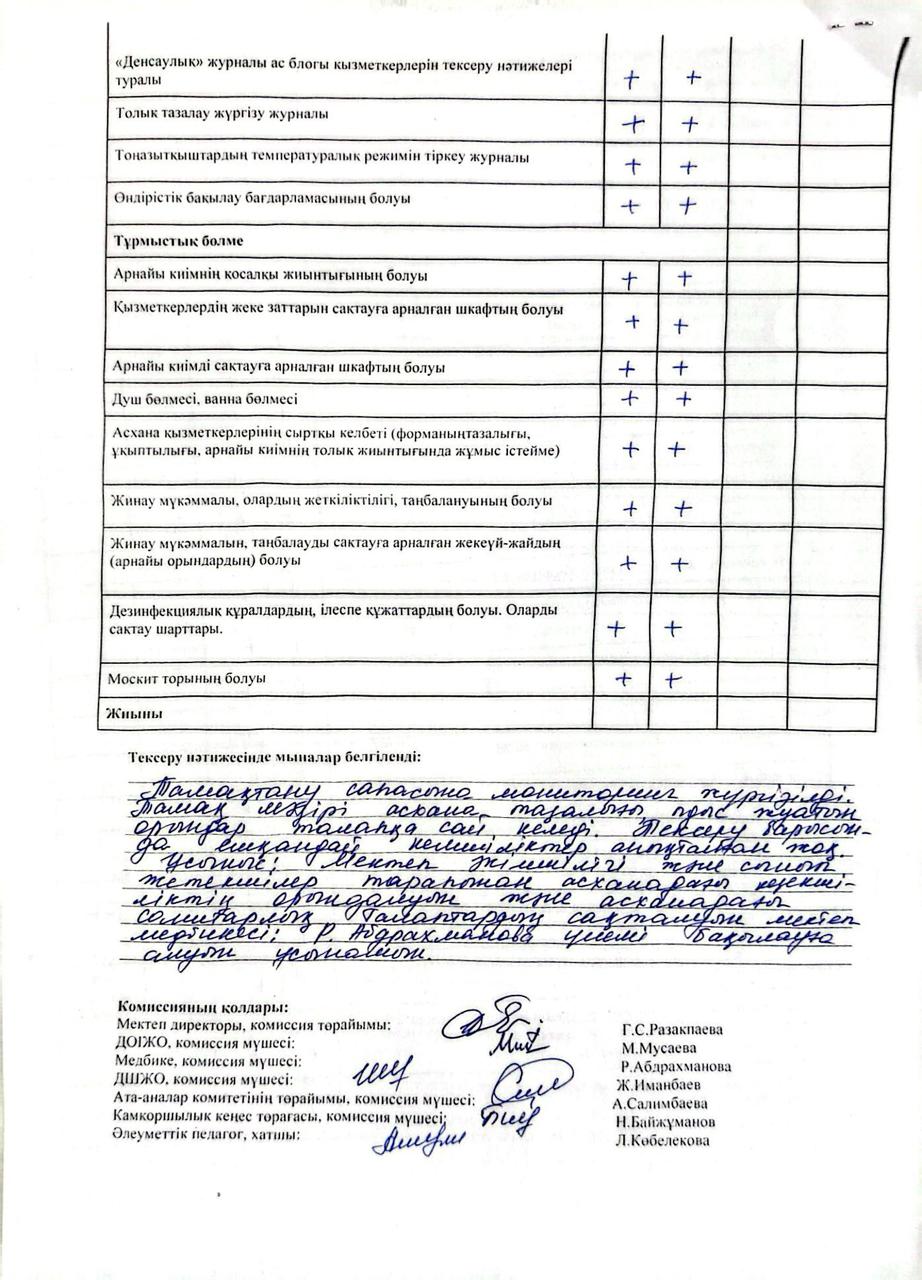 «Денсаулық» журналы ас блогы қызметкерлерін тексеру нәтижелері + +
туралы
Толық тазалау жүргізу журналы + +
Тоңазытқыштардың температуралық режимін тіркеу журналы + +
Өндірістік бақылау бағдарламасының болуы + +
Тұрмыстық бөлме
Арнайы киімнің қосалқы жиынтығының болуы + +
Қызметкерлердің жеке заттарын сақтауға арналған шкафтың болуы + +
Арнайы киімді сақтауға арналған шкафтың болуы + +
Душ бөлмесі, ванна бөлмесі + +
Асхана қызметкерлерінің сыртқы келбеті (форманыңтазалығы, + +
ұқыптылығы, арнайы киімнің толық жиынтығында жұмыс істейме)
Жинау мүкәммалы, олардың жеткіліктілігі, таңбалануының болуы + +
Жинау мүкәммалын, таңбалауды сақтауға арналған жекеүй-жайдың + +
(арнайы орындардың) болуы
Дезинфекциялық құралдардың, ілеспе құжаттардың болуы. Оларды + +
сақтау шарттары.
Москит торының болуы + +
Жиыны
Тексеру нәтижесінде мыналар белгіленді:
Тамақтану сапасына мониторинг жүргізілді.
Тамақ мәзірі асхана тазалығы ыдыс жуатын
орындар талапқа сай келеді. Тексеру барысын-
да ешқандай кемшіліктер анықталған жоқ.
Ұсыныс: Мектеп әкімшілігі және сынып
жетекшілер тарапынан асханадағы кезекші-
ліктің орындалуын және асханадағы
санитарлық талаптардың сақталуын мектеп
медбикесі: Р. Абдрахманова үнемі бақылауға
алуын ұсынамын.
Комиссияның қолдары:
Мектеп директоры, комиссия төрайымы: Г.С.Разакпаева
ДОІЖО, комиссия мүшесі: М.Мусаева
Медбике, комиссия мүшесі: Р.Абдрахманова
ДШЖО, комиссия мүшесі: Ж.Иманбаев
Ата-аналар комитетінің төрайымы, комиссия мүшесі: А.Салимбаева
Камкоршылык кеңес төрағасы, комиссия мүшесі: Н.Байжұманов
Әлеуметтік педагог, хатшы: Л.Көбелекова